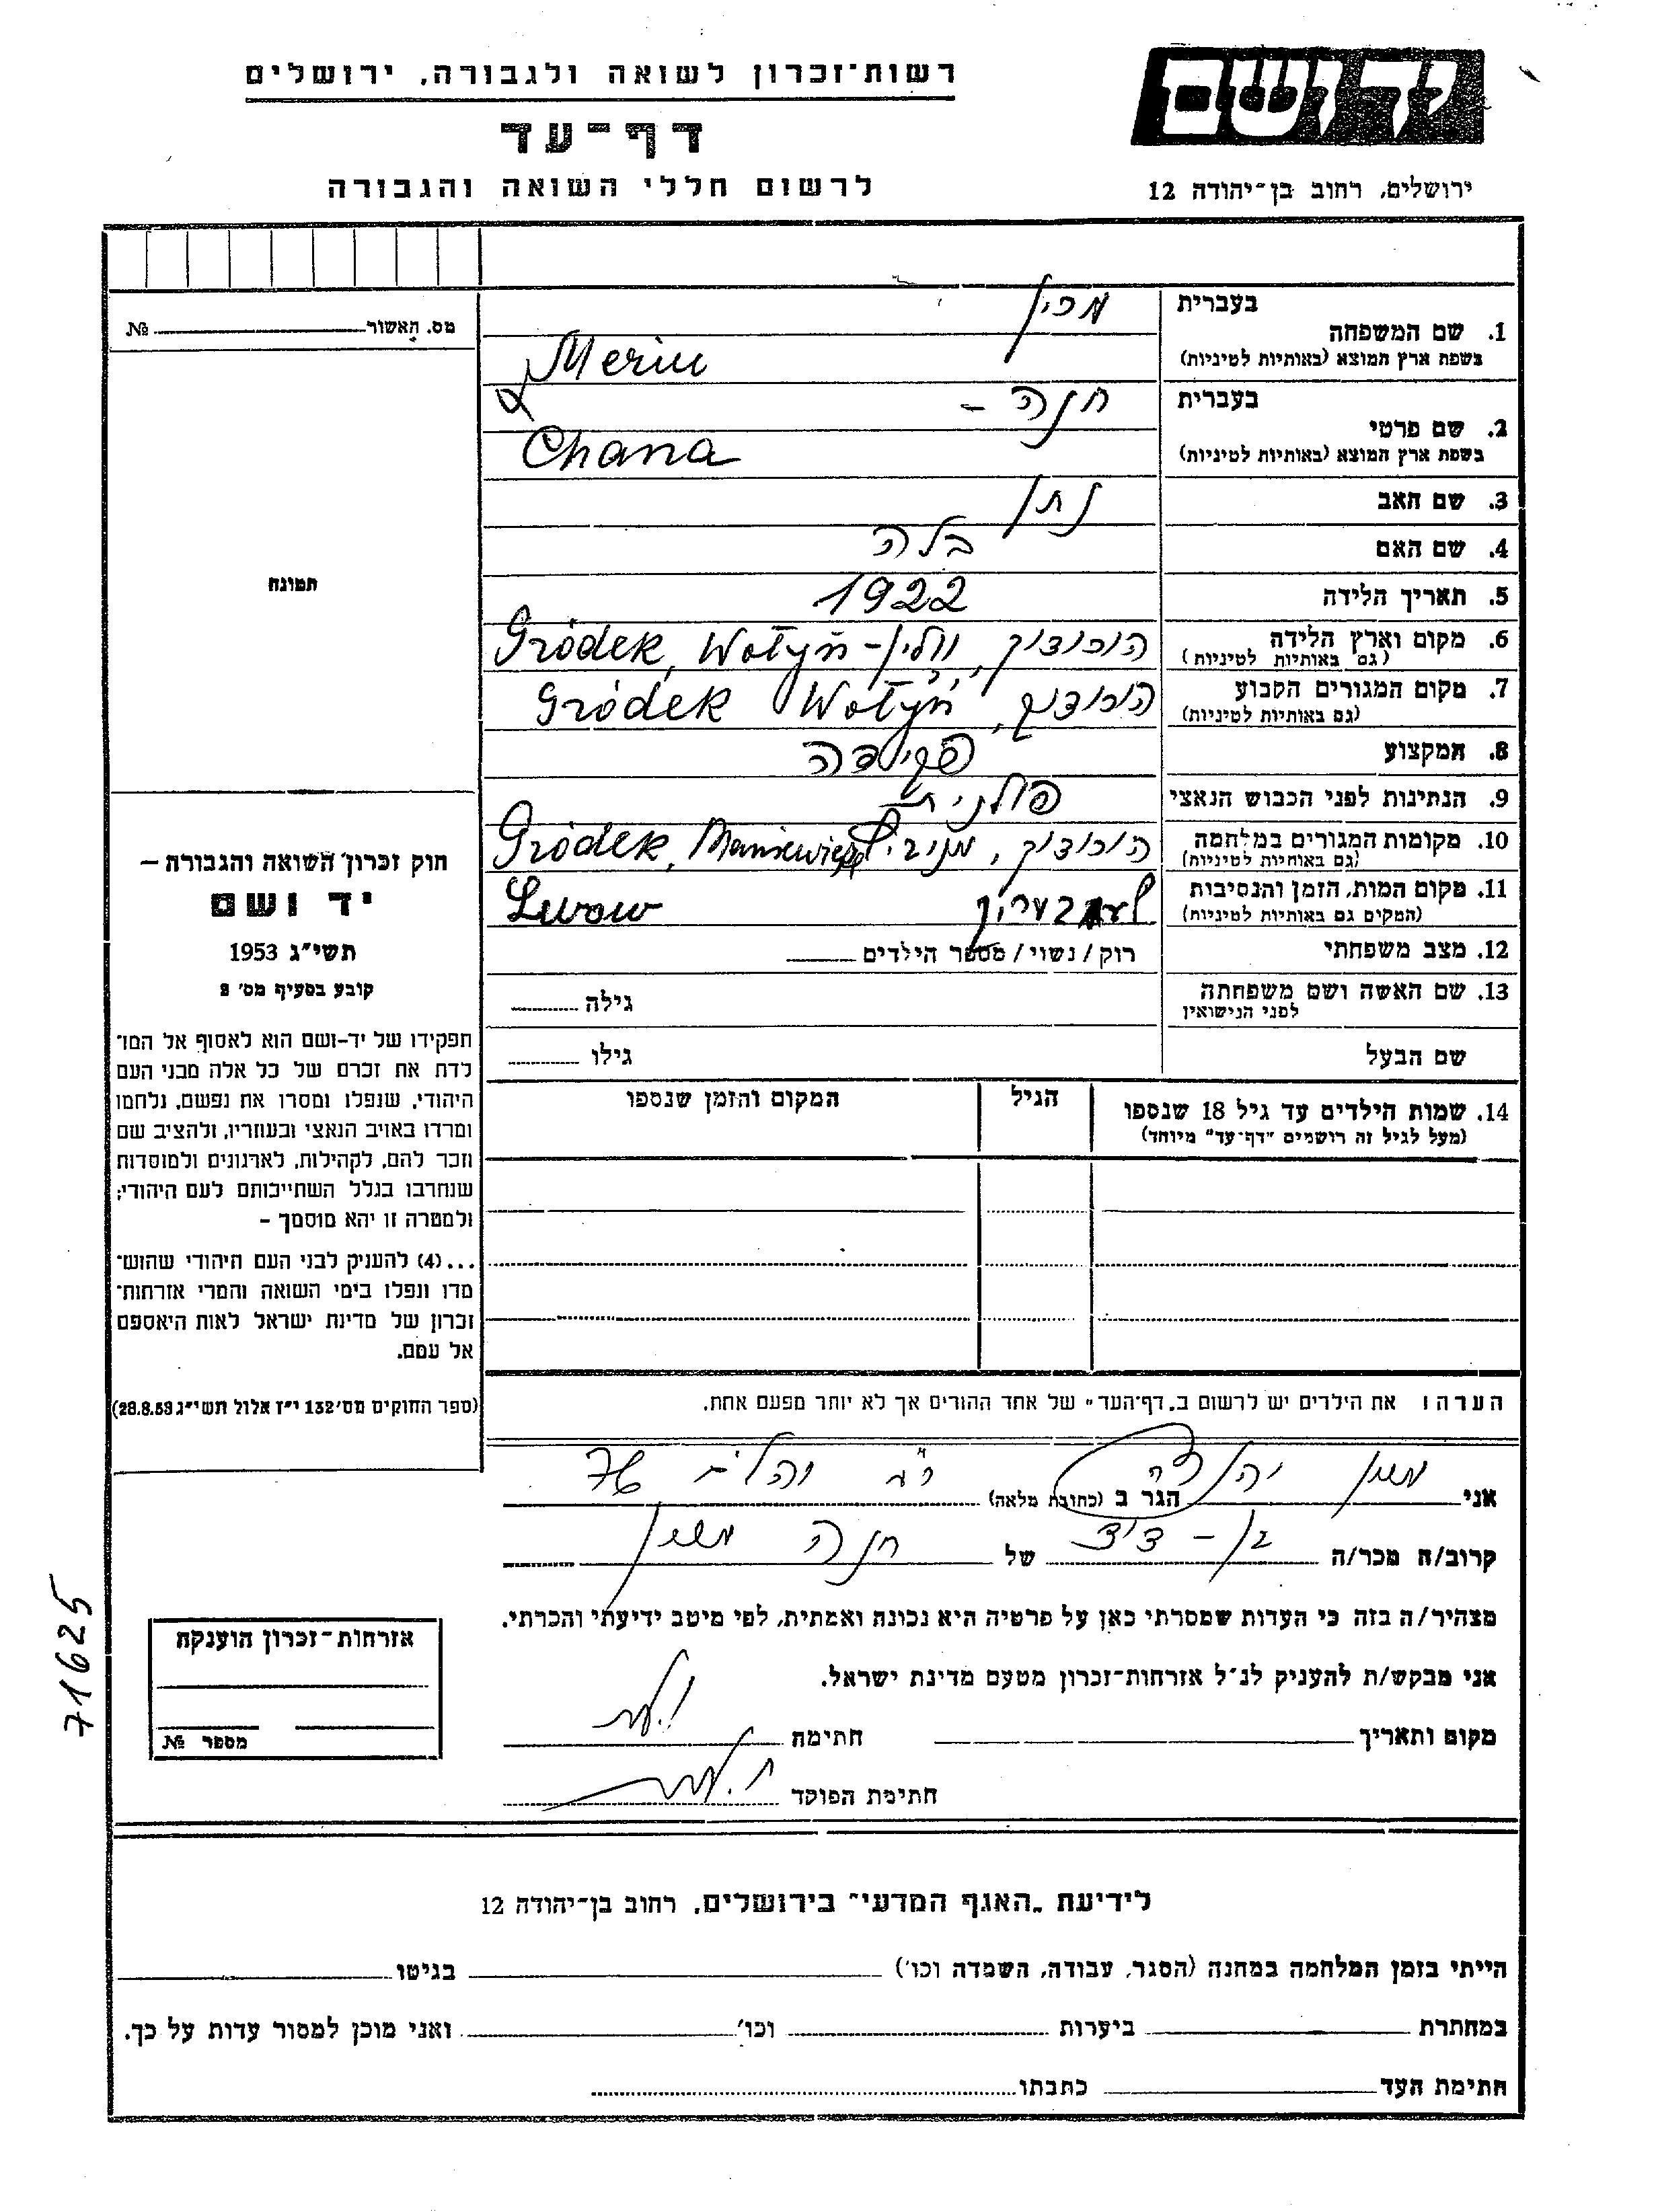 רשות־זכרון לשואה ולגבורה, ירושלים
דף־עד
לרשום חללי השואה והגבורה
יד ושם
ירושלים, רחוב בן־יהודה 12
מס. האשור № 
בעברית
1. שם המשפחה
בשפת ארץ המוצא (באותיות לטיניות)
Merin
בעברית חנה -
2. שם פרטי
בשפת ארץ המוצא (באותיות לטיניות)
Chana
3. שם האב נתן
4. שם האם בלה
5. תאריך הלידה 1922
6. מקום וארץ הלידה הורודוק, ווֹלין - Gródek, Wołyń
(גם באותיות לטיניות)
7. מקום המגורים הקבוע הורודוק, Gródek Wołyń
(גם באותיות לטיניות)
8. המקצוע פקידה
9. הנתינות לפני הכבוש הנאצי פולנית
10. מקומות המגורים במלחמה הורודוק, Gródek,
(גם באותיות לטיניות)
11. מקום המות, הזמן והנסיבות Lwow
(המקום גם באותיות לטיניות)
12. מצב משפחתי רוק / נשוי / מספר הילדים
13. שם האשה ושם משפחתה גילה
לפני הנישואין
שם הבעל גילו
14. שמות הילדים עד גיל 18 שנספו הגיל המקום והזמן שנספו
(מעל לגיל זה רושמים "דף־עד" מיוחד)
הערה! את הילדים יש לרשום ב"דף־העד" של אחד ההורים אך לא יותר מפעם אחת.
תמונה
חוק זכרון השואה והגבורה –
יד ושם
תשי״ג 1953
קובע בסעיף מס׳ 2
תפקידו של יד-ושם הוא לאסוף אל המו־
לדת את זכרם של כל אלה מבני העם
היהודי, שנפלו ומסרו את נפשם, נלחמו
ומרדו באויב הנאצי ובעוזריו, ולהציב שם
וזכר להם, לקהילות, לארגונים ולמוסדות
שנחרבו בגלל השתייכותם לעם היהודי;
ולמטרה זו יהא מוסמך –
...(4) להעניק לבני העם היהודי שהוש־
מדו ונפלו בימי השואה והמרי אזרחות־
זכרון של מדינת ישראל לאות היאספם
אל עמם.
(ספר החוקים מס׳ 132 י״ז אלול תשי״ג 28.8.53)
אני הגר ב (כתובת מלאה) 76
קרוב/ה מכר/ה בן - דוד של חנה
מצהיר/ה בזה כי העדות שמסרתי כאן על פרטיה היא נכונה ואמתית, לפי מיטב ידיעתי והכרתי.
אני מבקש/ת להעניק לנ״ל אזרחות־זכרון מטעם מדינת ישראל.
מקום ותאריך חתימה
חתימת הפוקד
אזרחות־זכרון הוענקה
מספר №
71625
לידיעת "האגף המדעי" בירושלים, רחוב בן־יהודה 12
הייתי בזמן המלחמה במחנה (הסגר, עבודה, השמדה וכו׳) בגיטו
במחתרת ביערות וכו׳ ואני מוכן למסור עדות על כך.
חתימת העד כתבתו